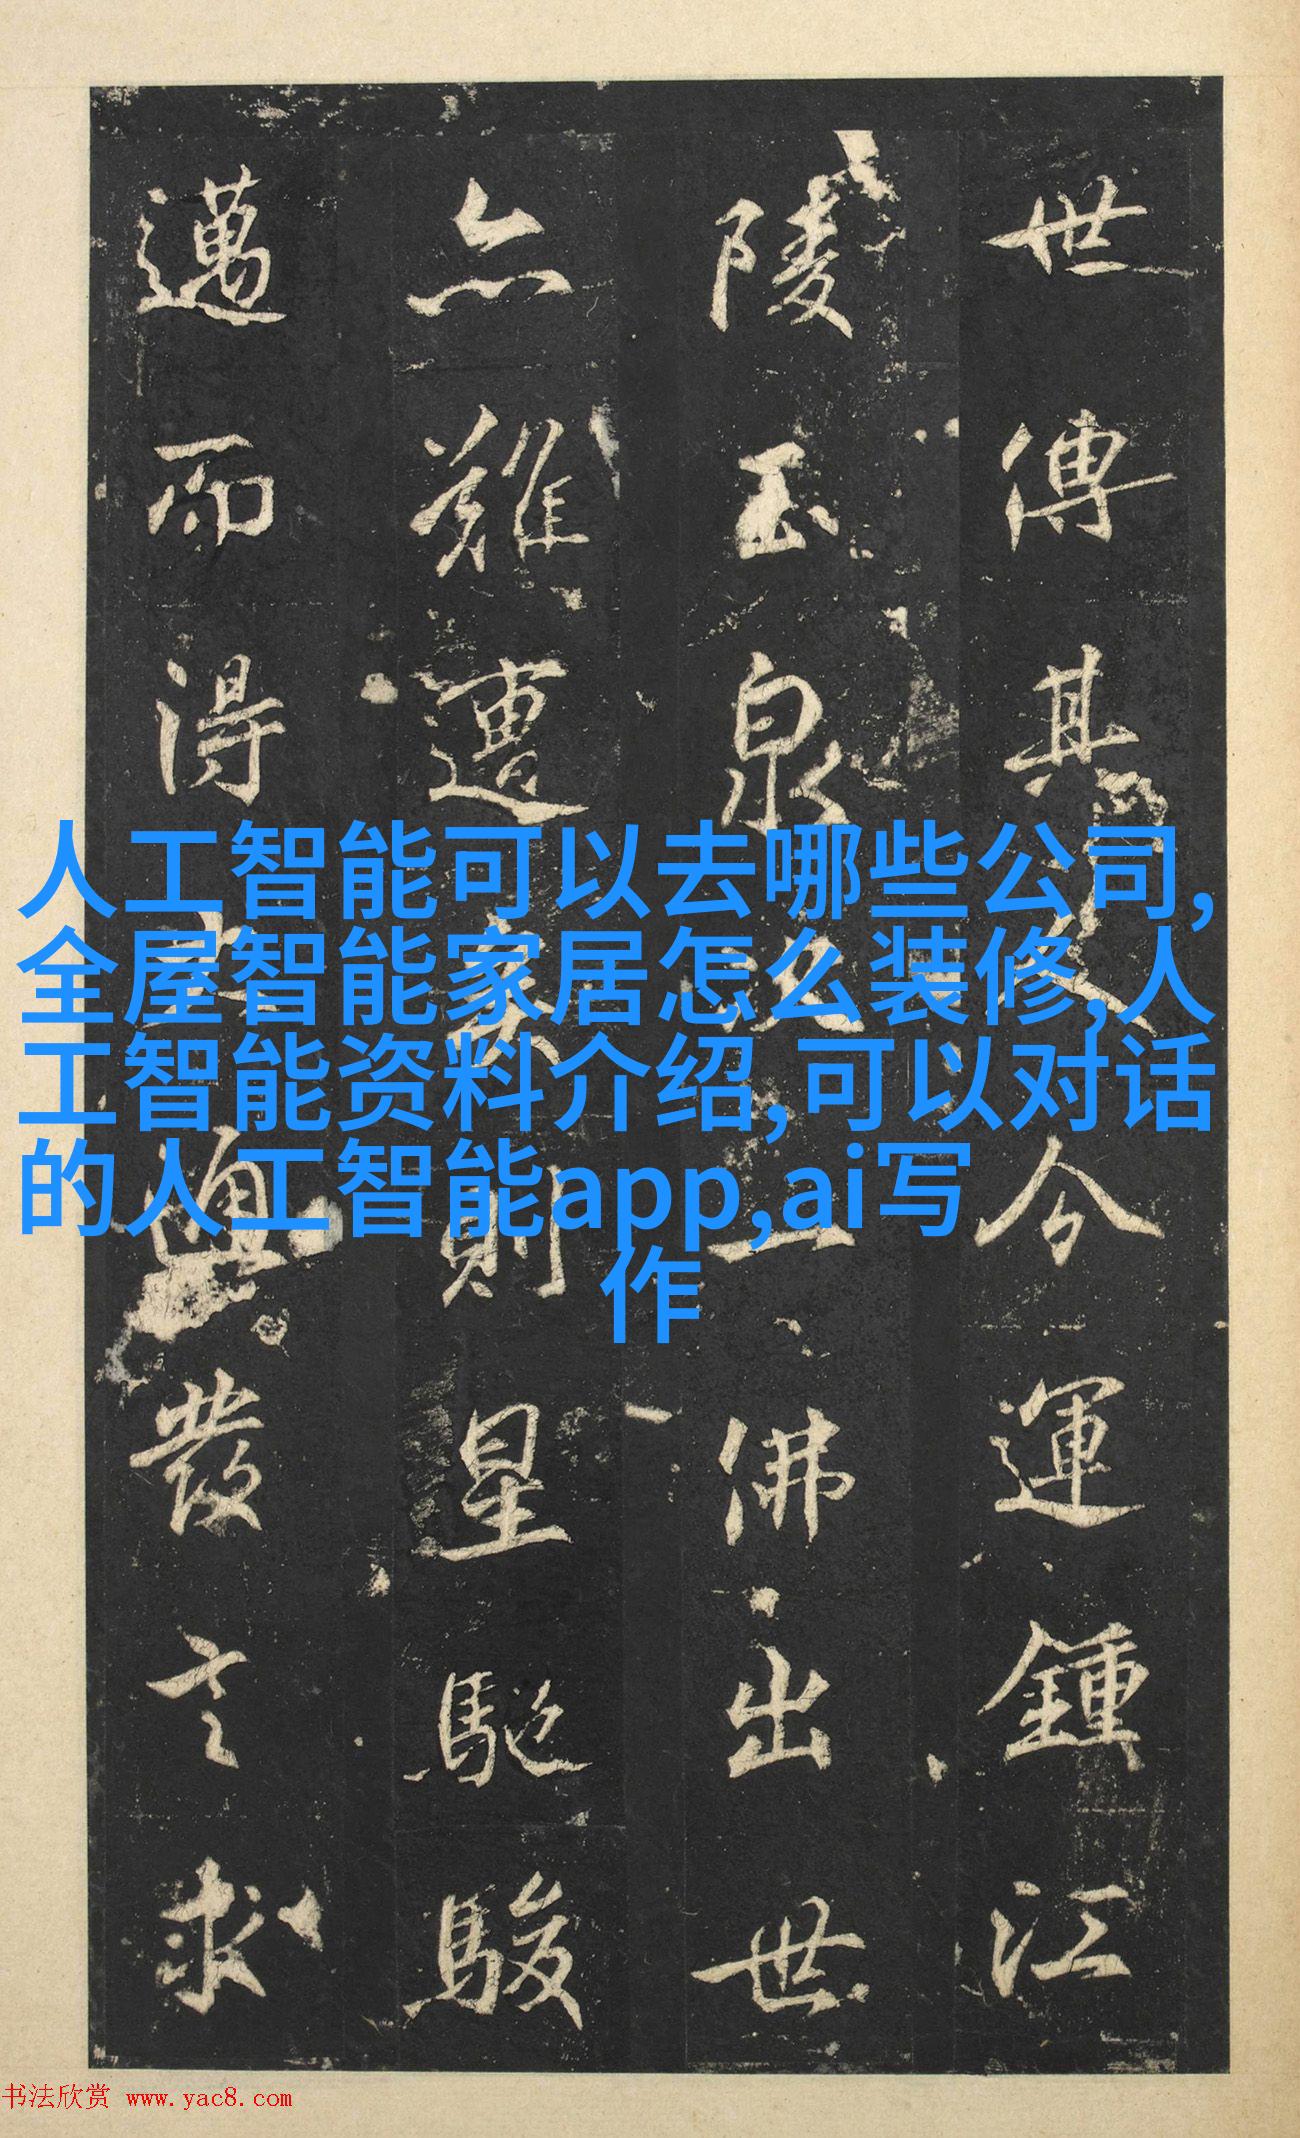 世傳其今運鍾江
陵玉泉一佛出世
亦難遭則星馳駿
邁而得發求
人工智能可以去哪些公司,
全屋智能家居怎么装修,人
工智能资料介绍,可以对话
的人工智能app,ai写
作
书法欣赏 www.yac8.com